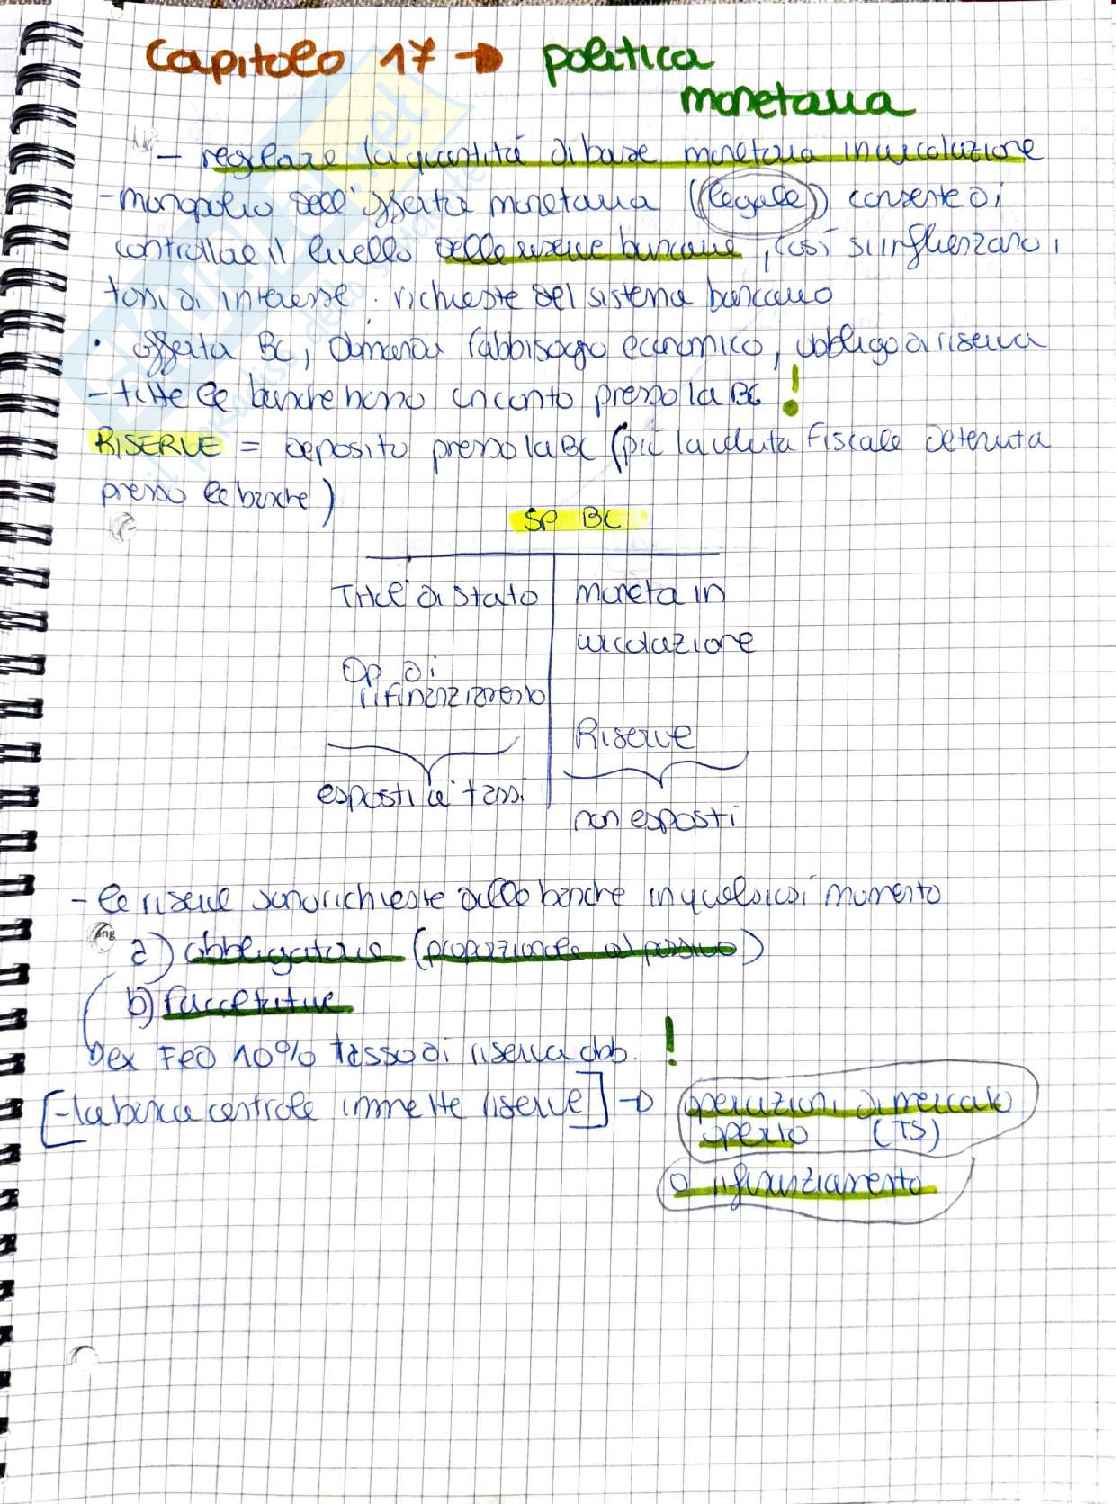 Capitolo 17 → politica
monetaria
- regolare la quantità di base monetaria in circolazione
- monopolio dell'offerta monetaria (legale) consente di
controllare il livello delle riserve bancarie, così si influenzano i
tassi di interesse. richieste del sistema bancario
• offerta BC, domanda fabbisogno economico, obbligo di riserva
- tutte le banche hanno un conto presso la BC !
RISERVE = deposito presso la BC (più la valuta fiscale detenuta
presso le banche)
SP BC
Titoli di Stato moneta in
circolazione
Op. di
rifinanziamento
Riserve
esposti ai tassi
non esposti
- le riserve sono richieste dalle banche in qualsiasi momento
a) obbligatorie (proporzionale al passivo)
b) facoltative
ex FED 10% tasso di riserva obb. !
[- la banca centrale immette riserve] → operazioni di mercato
aperto (TS)
o rifinanziamento